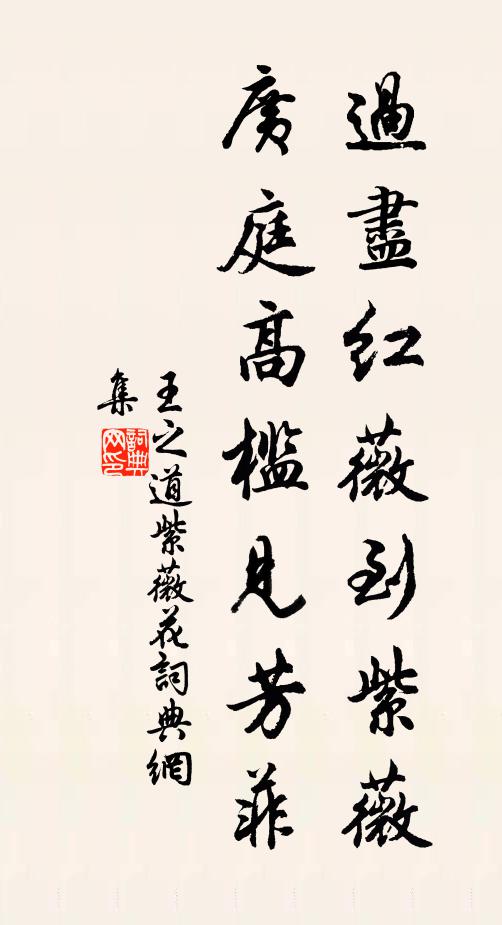 過盡紅薇到紫薇
廣庭高檻見芳菲
王之道紫薇花詞典網
集
詞典
网印